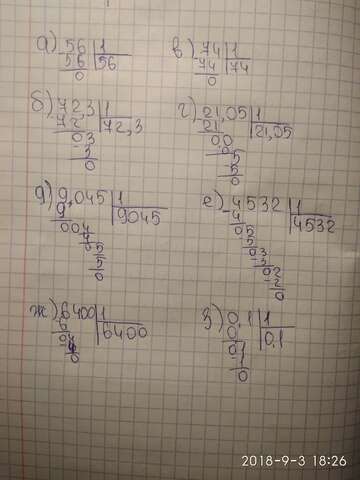 а) 56 | 1
- 56 | 56
0
в) 74 | 1
- 74 | 74
0
б) 72,3 | 1
- 72 | 72,3
03
- 3
0
г) 21,05 | 1
- 21 | 21,05
0,0
- 0
5
- 5
0
д) 9,045 | 1
- 9 | 9045
004
4
05
5
0
е) 4532 | 1
- 4 | 4532
05
- 5
03
- 3
02
- 2
0
ж) 6400 | 1
6 | 6400
04
4
0
з) 0,1 | 1
0 | 0,1
01
- 1
0
2018-9-3 18:26